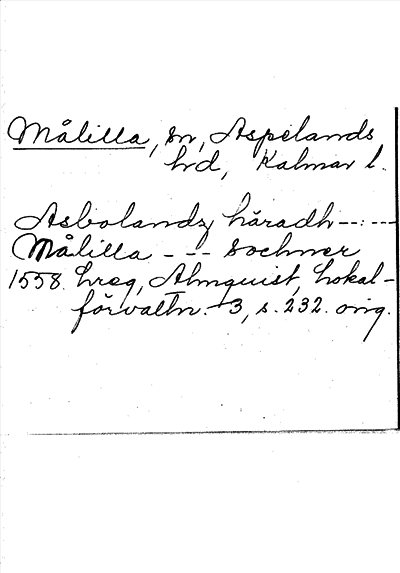 Målilla, sn, Aspelands
hrd, Kalmar l.
Asbolandz häradh --:---
Målilla - -- Sochner
1558. hreg, Almquist, Lokal-
förvaltn. 3, s. 232. orig.